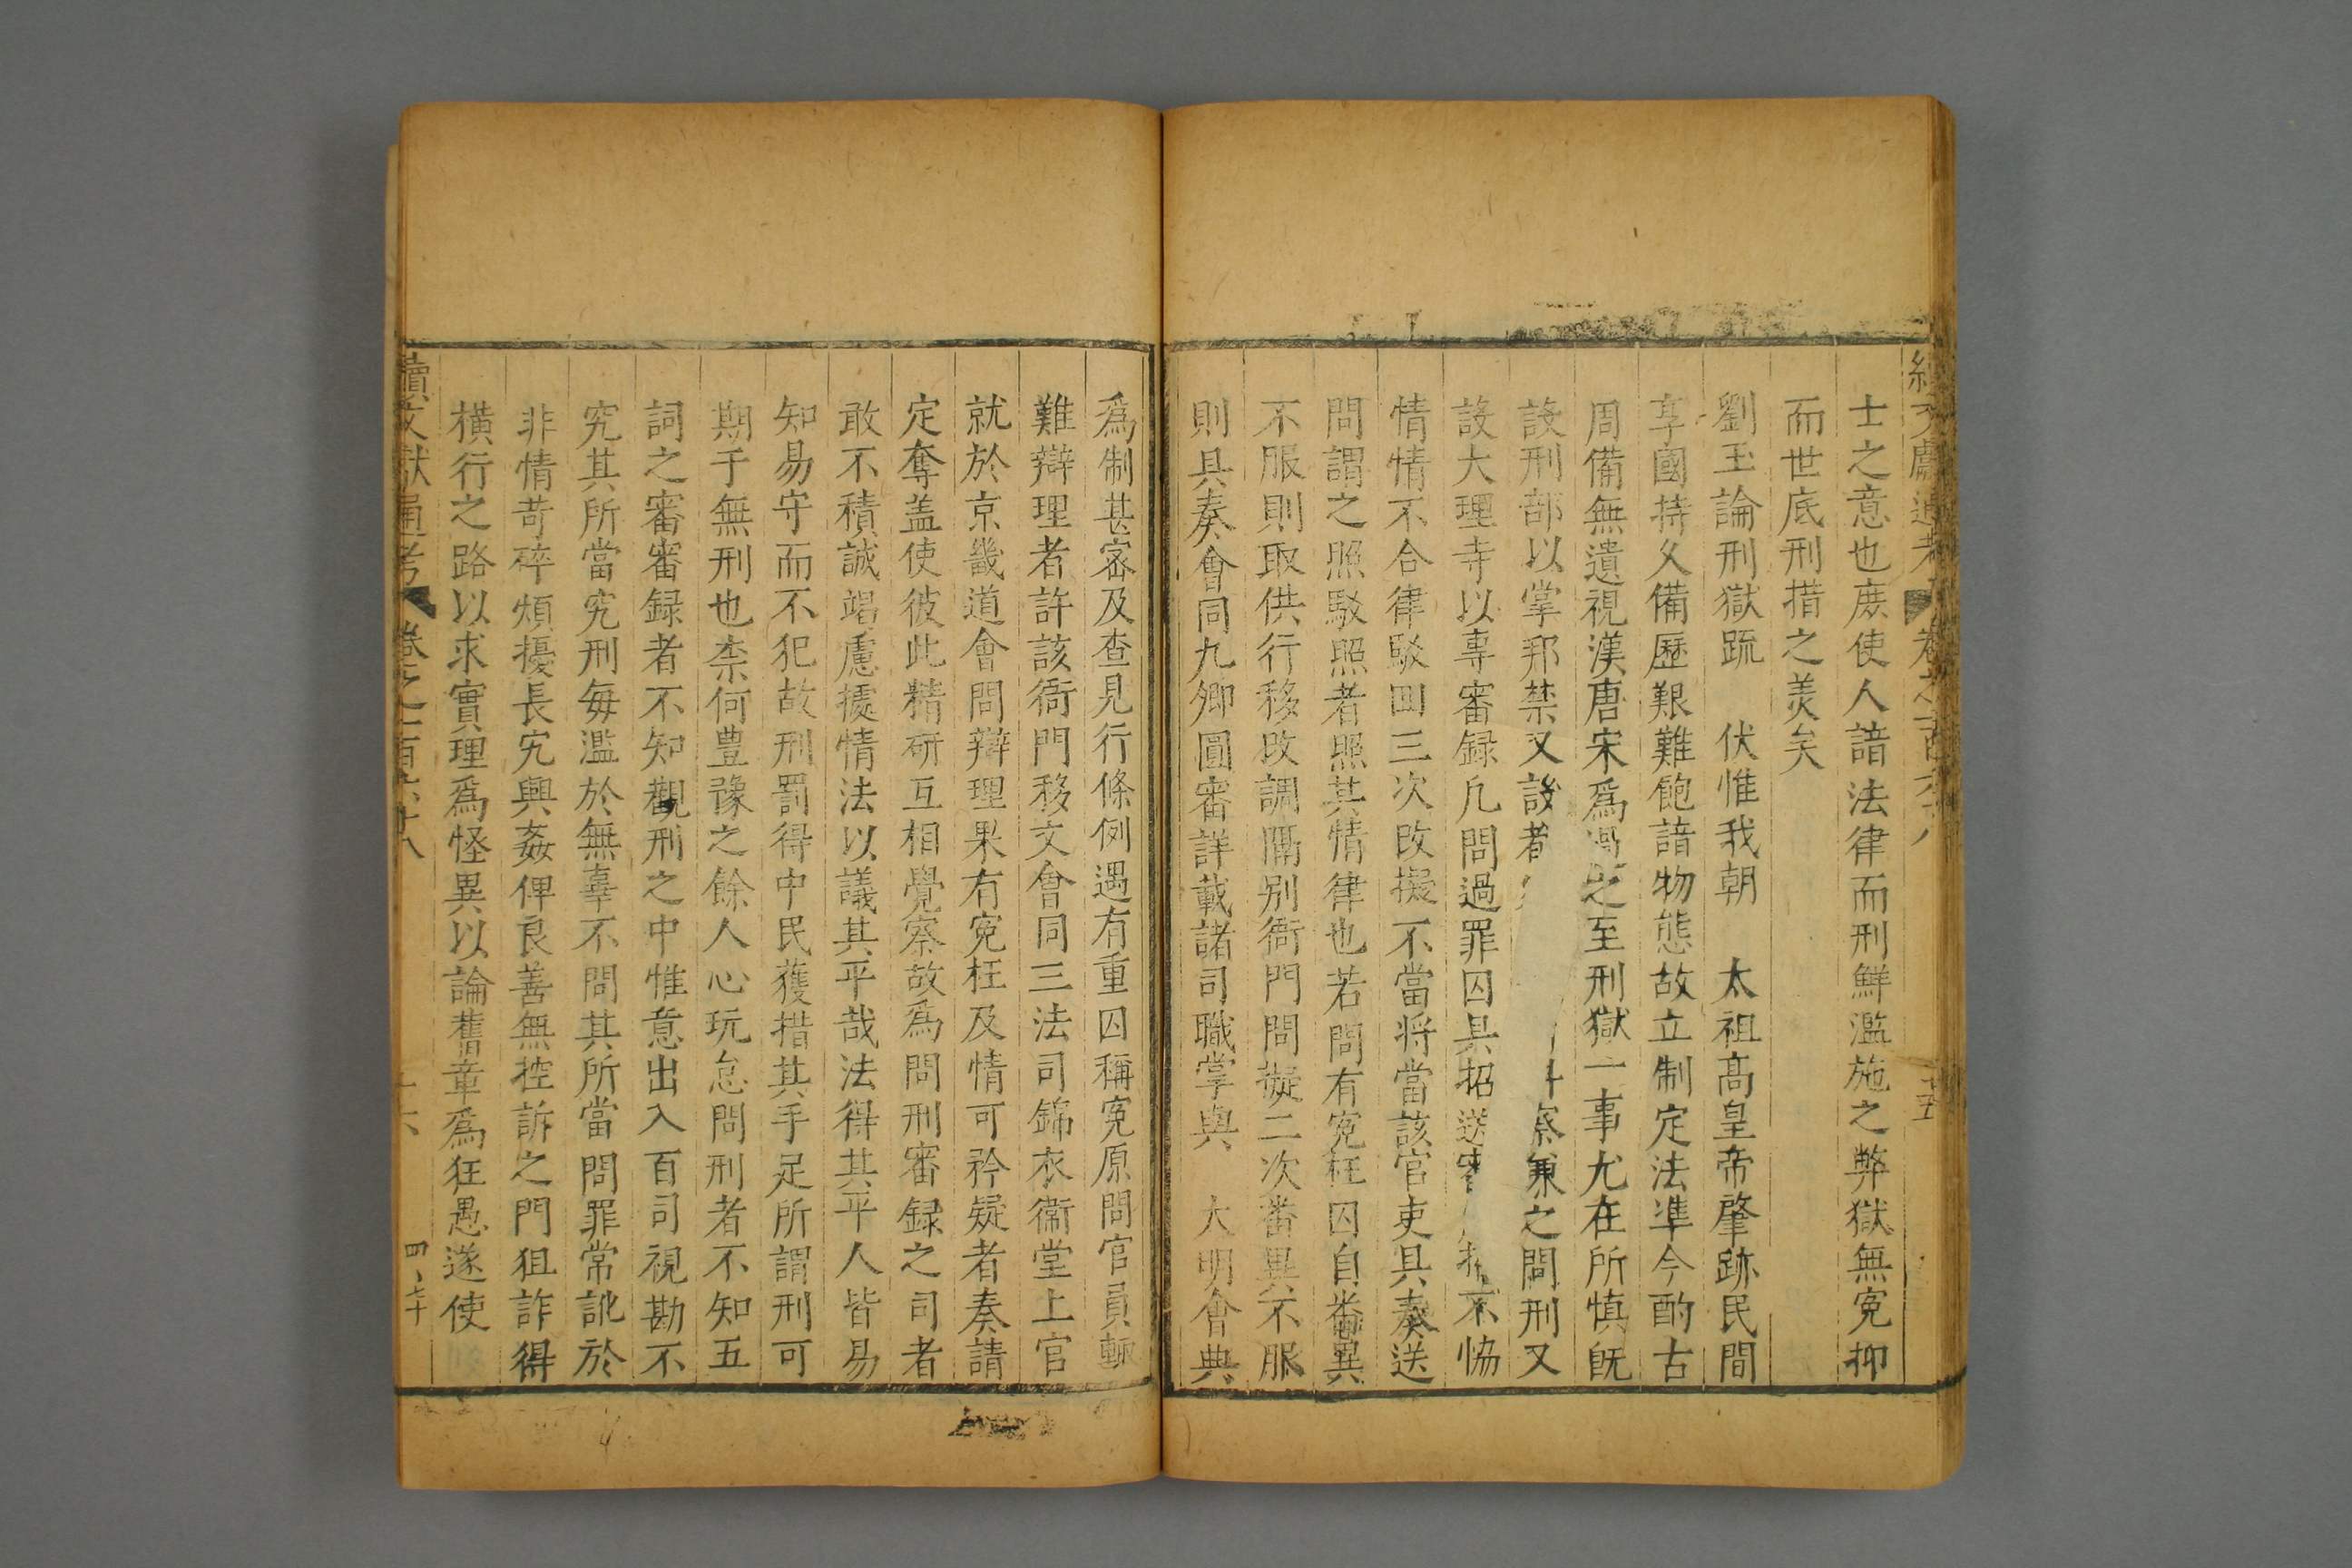 士之意也庶使人諳法律而刑鮮濫施之弊獄無冤抑
而世底刑措之美矣
劉玉論刑獄疏 伏惟我朝 太祖高皇帝肇跡民間
享國持久備歷艱難飽諳物態故立制定法準今酌古
周備無遺視漢唐宋為過之至刑獄一事尤在所慎既
設刑部以掌邦禁又設都 察兼之問刑又
設大理寺以專審録凡問過罪囚具招送審 招不協
情情不合律駁回三次改擬不當將當該官吏具奏送
問謂之照駁照者照其情律也若問有冤枉囚自番異
不服則取供行移改調隔别衙門問擬二次番異不服
則具奏會同九卿圓審詳載諸司職掌與 大明會典
為制甚宻及查見行條例遇有重囚稱冤原問官員輒
難辯理者許該衙門移文會同三法司錦衣衞堂上官
就於京畿道會問辯理果有冤枉及情可矜疑者奏請
定奪盖使彼此精研互相覺察故為問刑審録之司者
敢不積誠竭慮據情法以議其平哉法得其平人皆易
知易守而不犯故刑罰得中民獲措其手足所謂刑可
期于無刑也柰何豊豫之餘人心玩怠問刑者不知五
詞之審審録者不知觀刑之中惟意出入百司視勘不
究其所當究刑毎濫於無辜不問其所當問罪常訛於
非情苛碎煩擾長宄興姦俾良善無控訴之門狙詐得
横行之路以求實理為怪異以論舊章為狂愚遂使
續文獻通考 卷之一百六十八